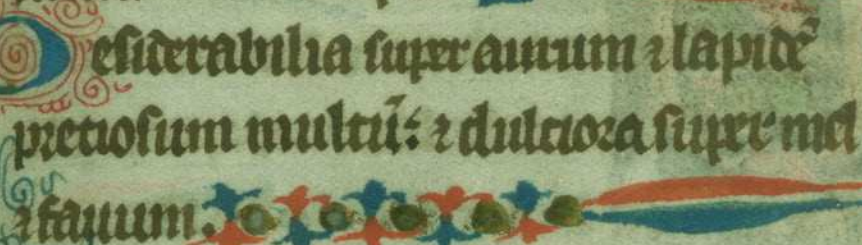 Desiderabilia super aurum ⁊ lapidē
pretiosum multū: ⁊ dulciora super mel
⁊ fauum.